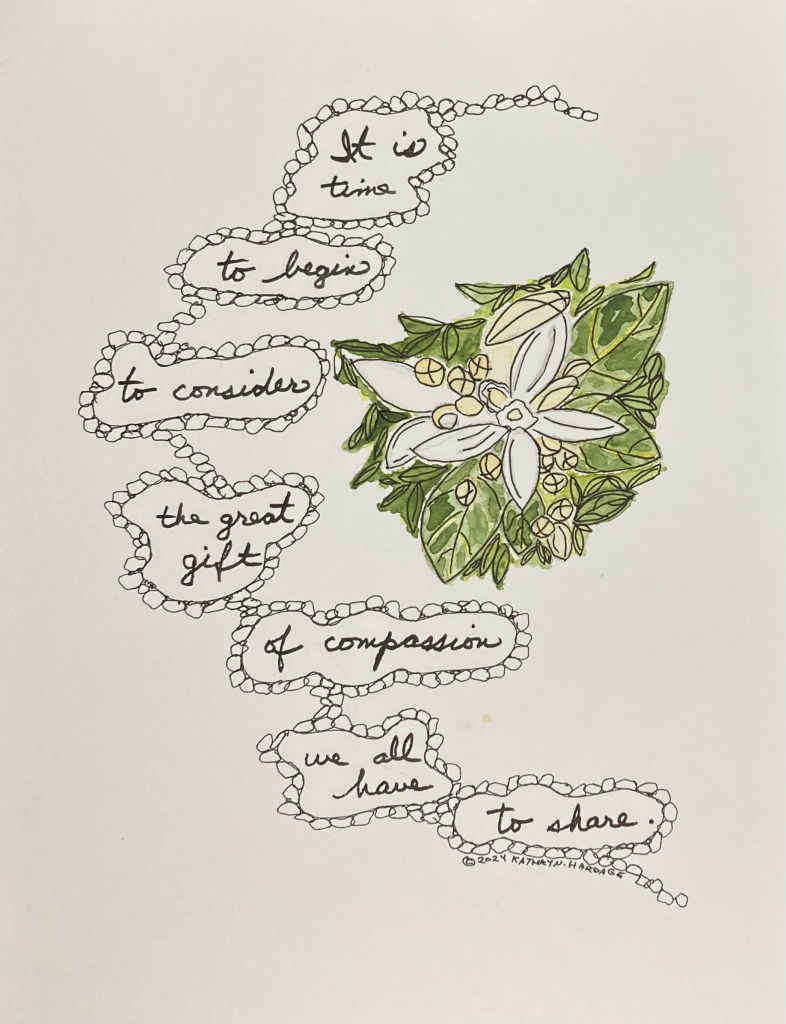 It is
time
to begin
to consider
the great
gift
of compassion
we all
have
to share.
© 2024 KATHRYN HARDAGE